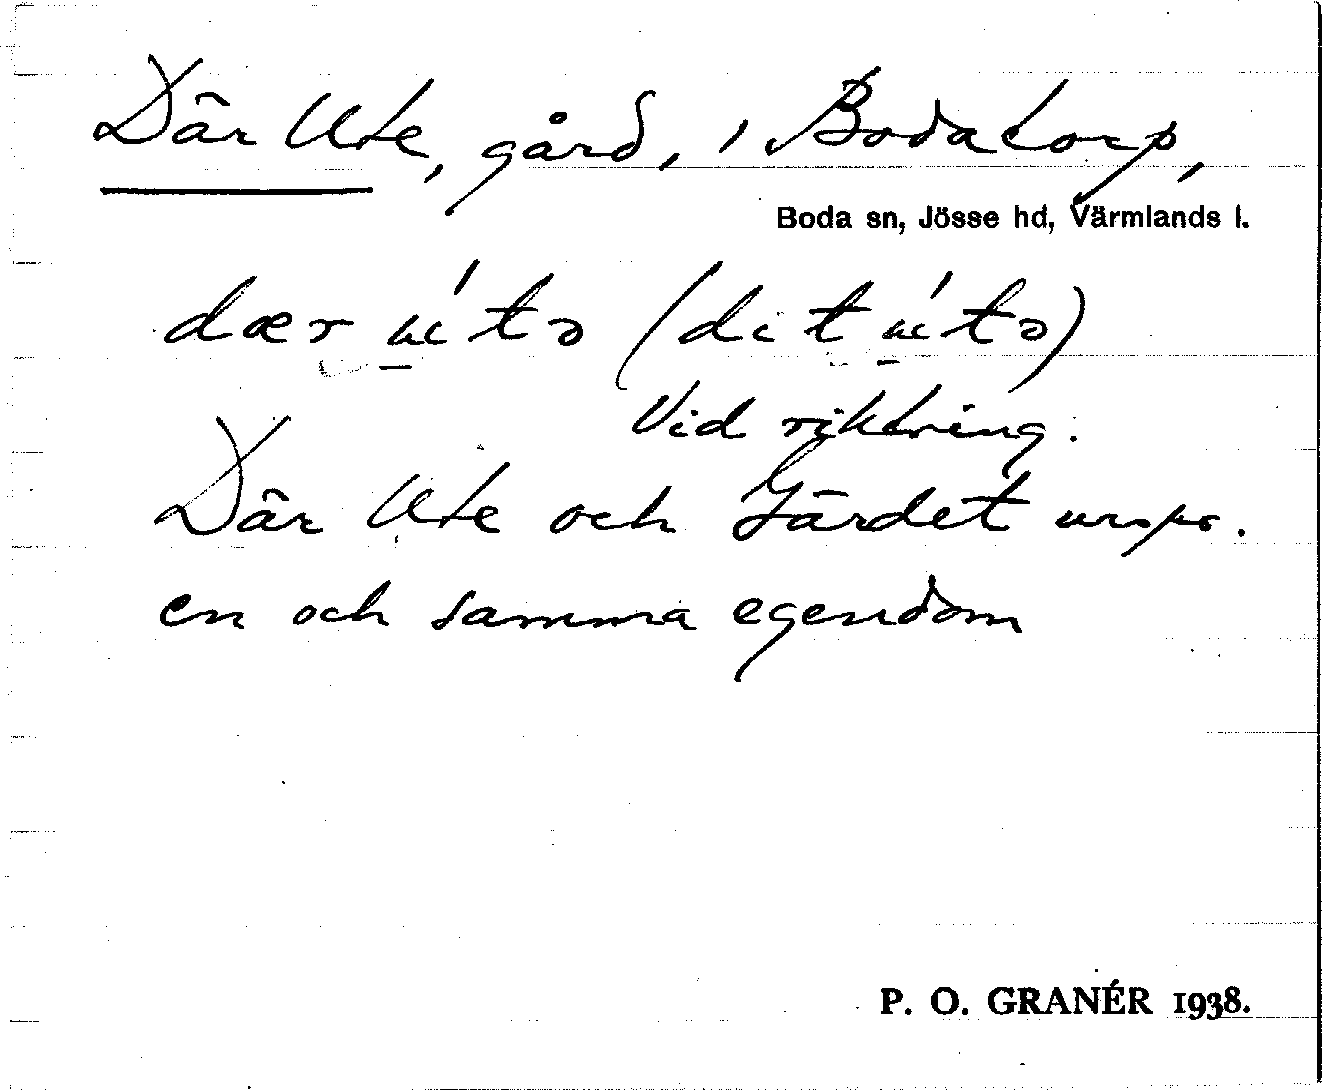 Där Ute, gård, i Bodatorp,
Boda sn, Jösse hd, Värmlands l.
dær ú̱tə (dit ú̱tə)
Vid riktning.
Där Ute och Gärdet urspr.
en och samma egendom
P. O. GRANÉR 1938.